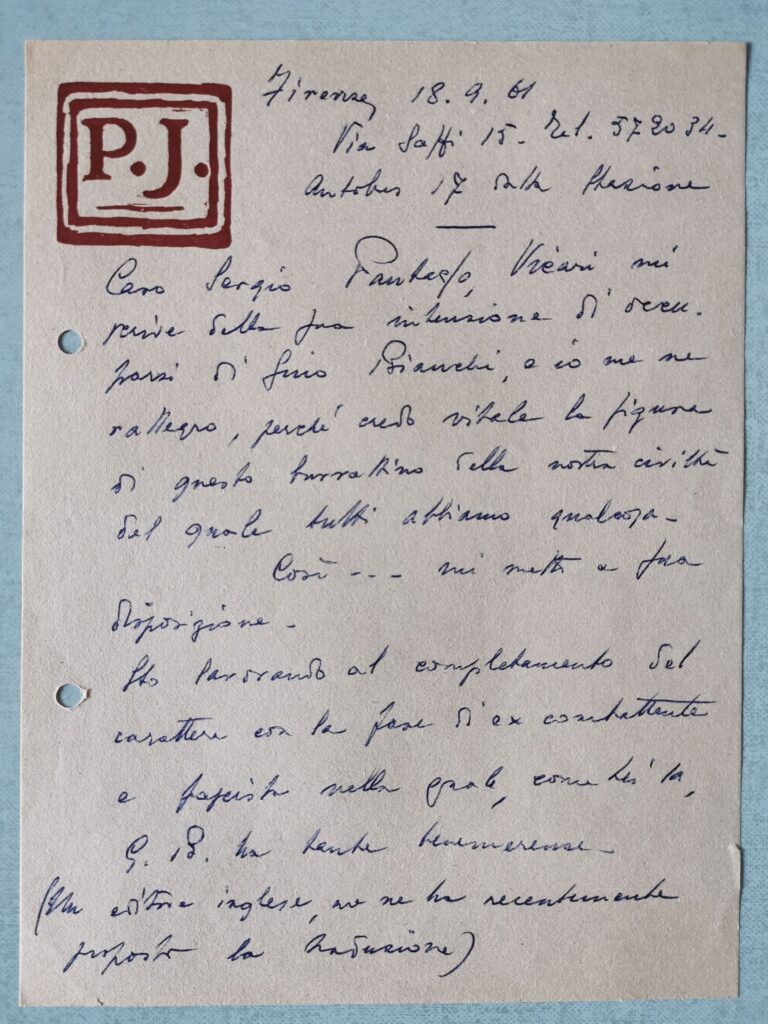 P.J.
Firenze, 18.9.61
Via Saffi 15. Tel. 572034-
Autobus 17 dalla Stazione
Caro Sergio Pautasso, Vicari mi
scrive della sua intenzione di occu-
parsi di Gino Bianchi, e io me ne
rallegro, perché credo vitale la figura
di questo burrattino della nostra civiltà
del quale tutti abbiamo qualcosa-
Così --- mi metto a sua
disposizione-
Sto lavorando al completamento del
carattere con la fase di ex combattente
e fascista nella quale,
G. B. ha tante benemerenze-
(Un editore inglese, me ne ha recentemente
proposto la traduzione)